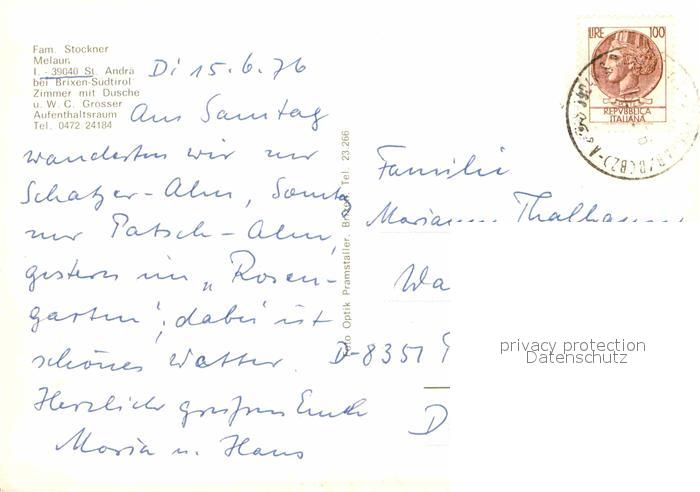 Fam. Stockner
Melaun
I. - 39040 St. Andrä
bei Brixen-Südtirol
Zimmer mit Dusche
u. W. C. Grosser
Aufenthaltsraum
Tel. 0472 24184
Di 15.6.76
Am Samstag
wanderten wir zur
Schatzer-Alm, Sonntag
zur Patsch-Alm,
gestern im „Rosen-
garten“; dabei ist
schönes Wetter.
Herzlich grüßen Euch
Maria u. Hans
Foto Optik Pramstaller, Brixen Tel. 23.266
LIRE 100
REPVBBLICA
ITALIANA
Familie
Thalhammer
Wa
D-8351
D
privacy protection
Datenschutz